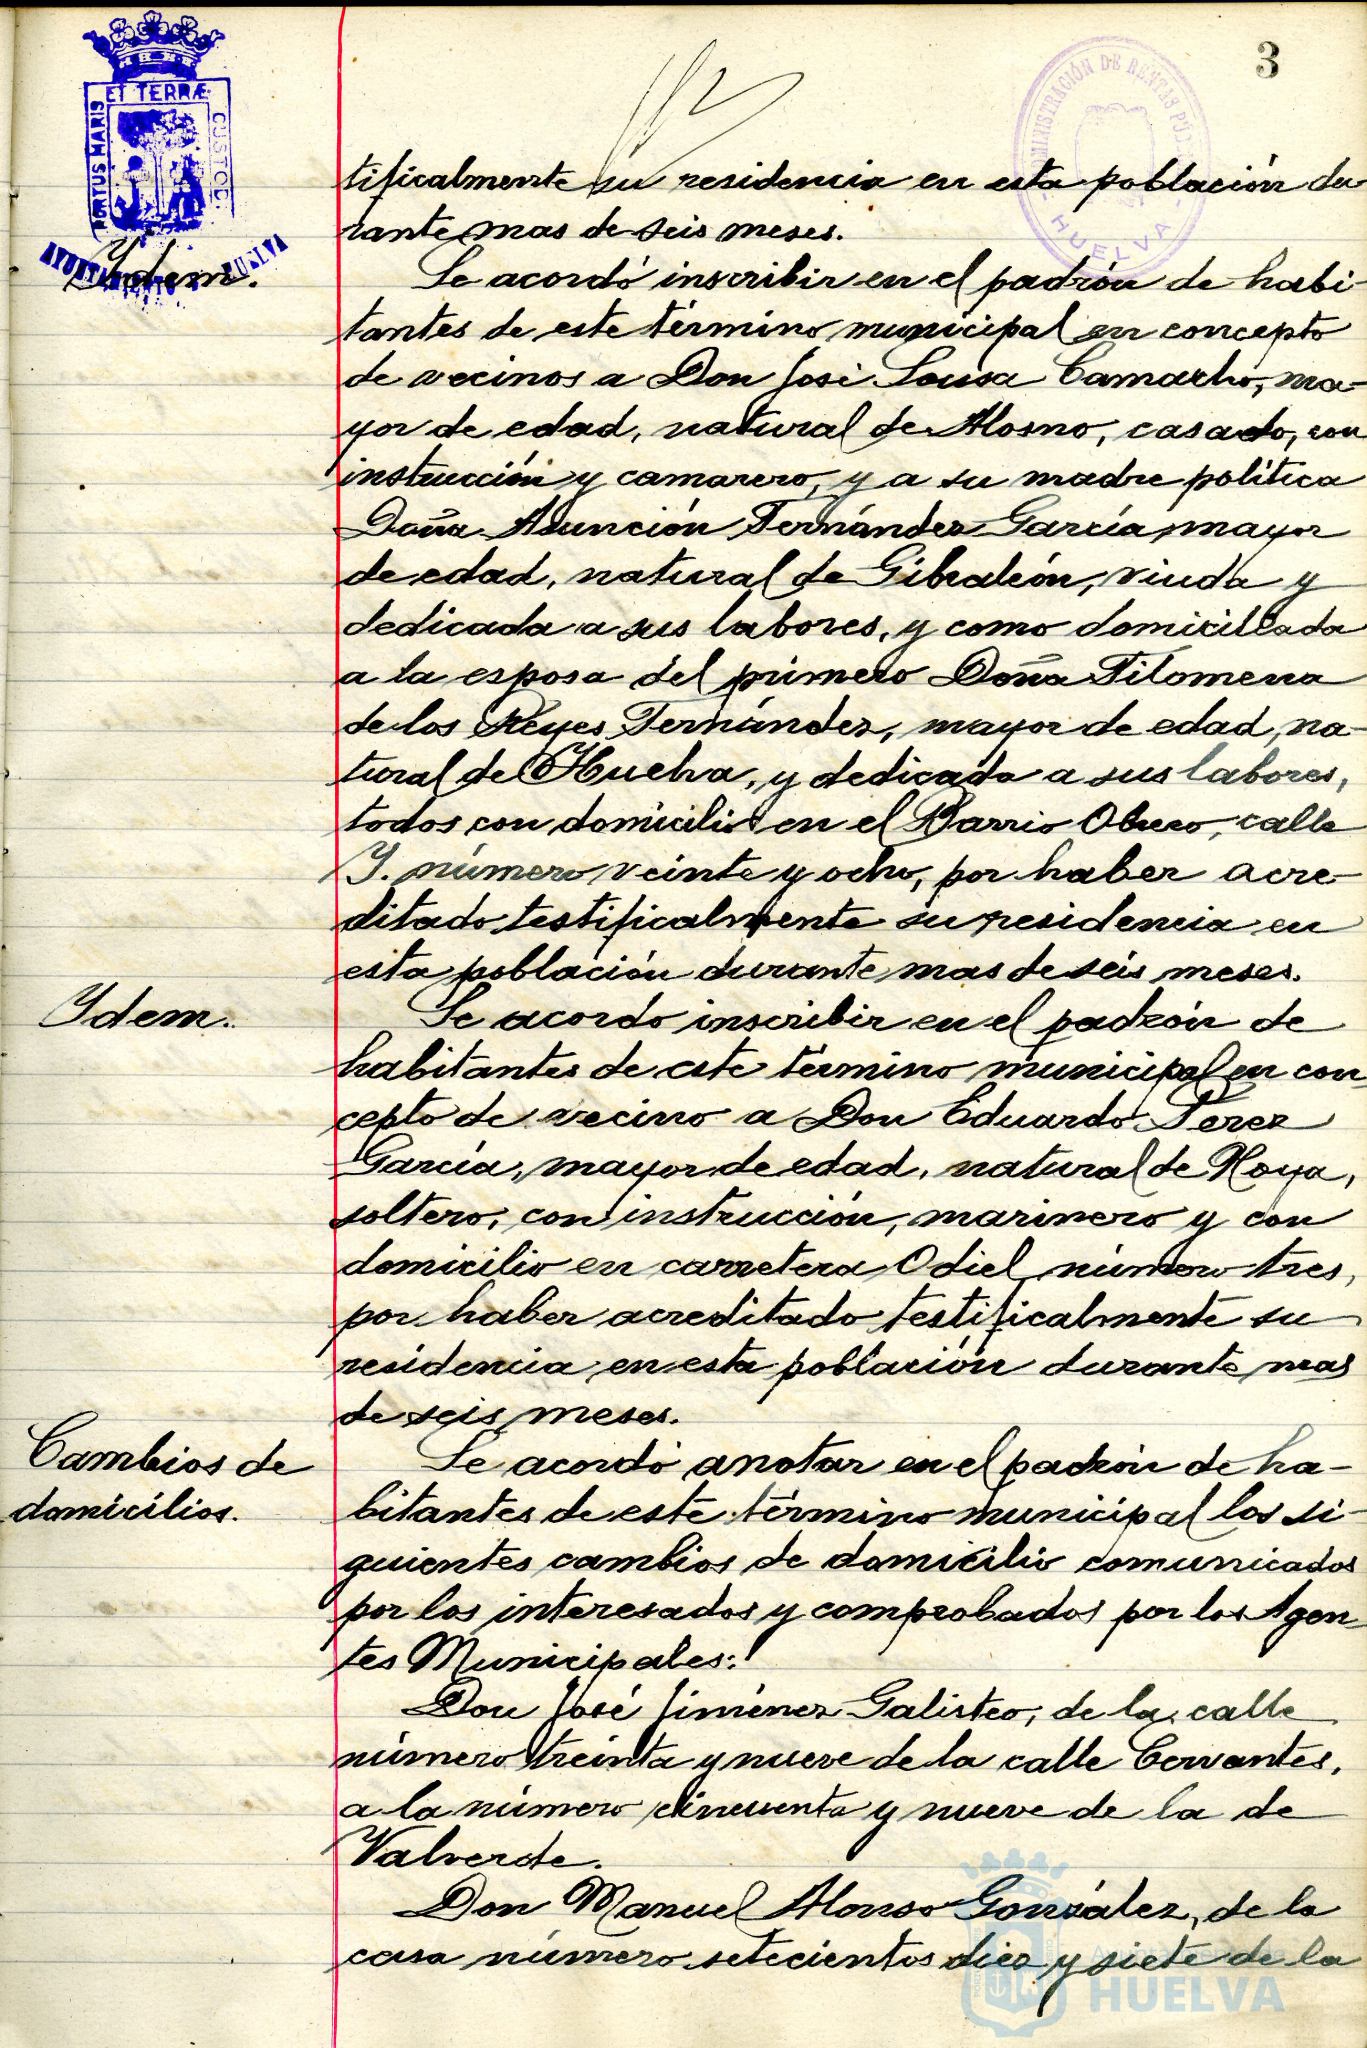 3
ET TERRÆ
PORTUS MARIS
CUSTOD.
AYUNTAMIENTO HUELVA
ADMINISTRACIÓN DE RENTAS PÚBLICAS
HUELVA
tificalmente su residencia en esta población du
rante mas de seis meses.
Ydem.
Se acordó inscribir en el padrón de habi-
tantes de este término municipal en concepto
de vecinos a Don José Sousa Camacho, ma-
yor de edad, natural de Alosno, casado, con
instrucción y camarero, y a su madre política
Doña Asunción Fernández García, mayor
de edad, natural de Gibraleón, viuda y
dedicada a sus labores, y como domiciliada
a la esposa del primero Doña Filomena
de los Reyes Fernández, mayor de edad, na-
tural de Huelva, y dedicada a sus labores,
todos con domicilio en el Barrio Obrero, calle
Y. número veinte y ocho, por haber acre-
ditado testificalmente su residencia en
esta población durante mas de seis meses.
Ydem.
Se acordó inscribir en el padrón de
habitantes de este término municipal en con
cepto de vecino a Don Eduardo Perez
García, mayor de edad, natural de Noya,
soltero, con instrucción, marinero y con
domicilio en carretera Odiel número tres,
por haber acreditado testificalmente su
residencia en esta población durante mas
de seis meses.
Cambios de
domicilios.
Se acordó anotar en el padrón de ha-
bitantes de este término municipal los si-
guientes cambios de domicilio comunicados
por los interesados y comprobados por los Agen
tes Municipales:
Don José Jiménez Galisteo, de la calle
número treinta y nueve de la calle Cervantes,
a la número cincuenta y nueve de la de
Valverde.
Don Manuel Alonso González, de la
casa número setecientos diez y siete de la
Ayuntamiento de
HUELVA